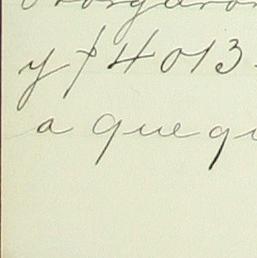 y $ 4013
a que qu